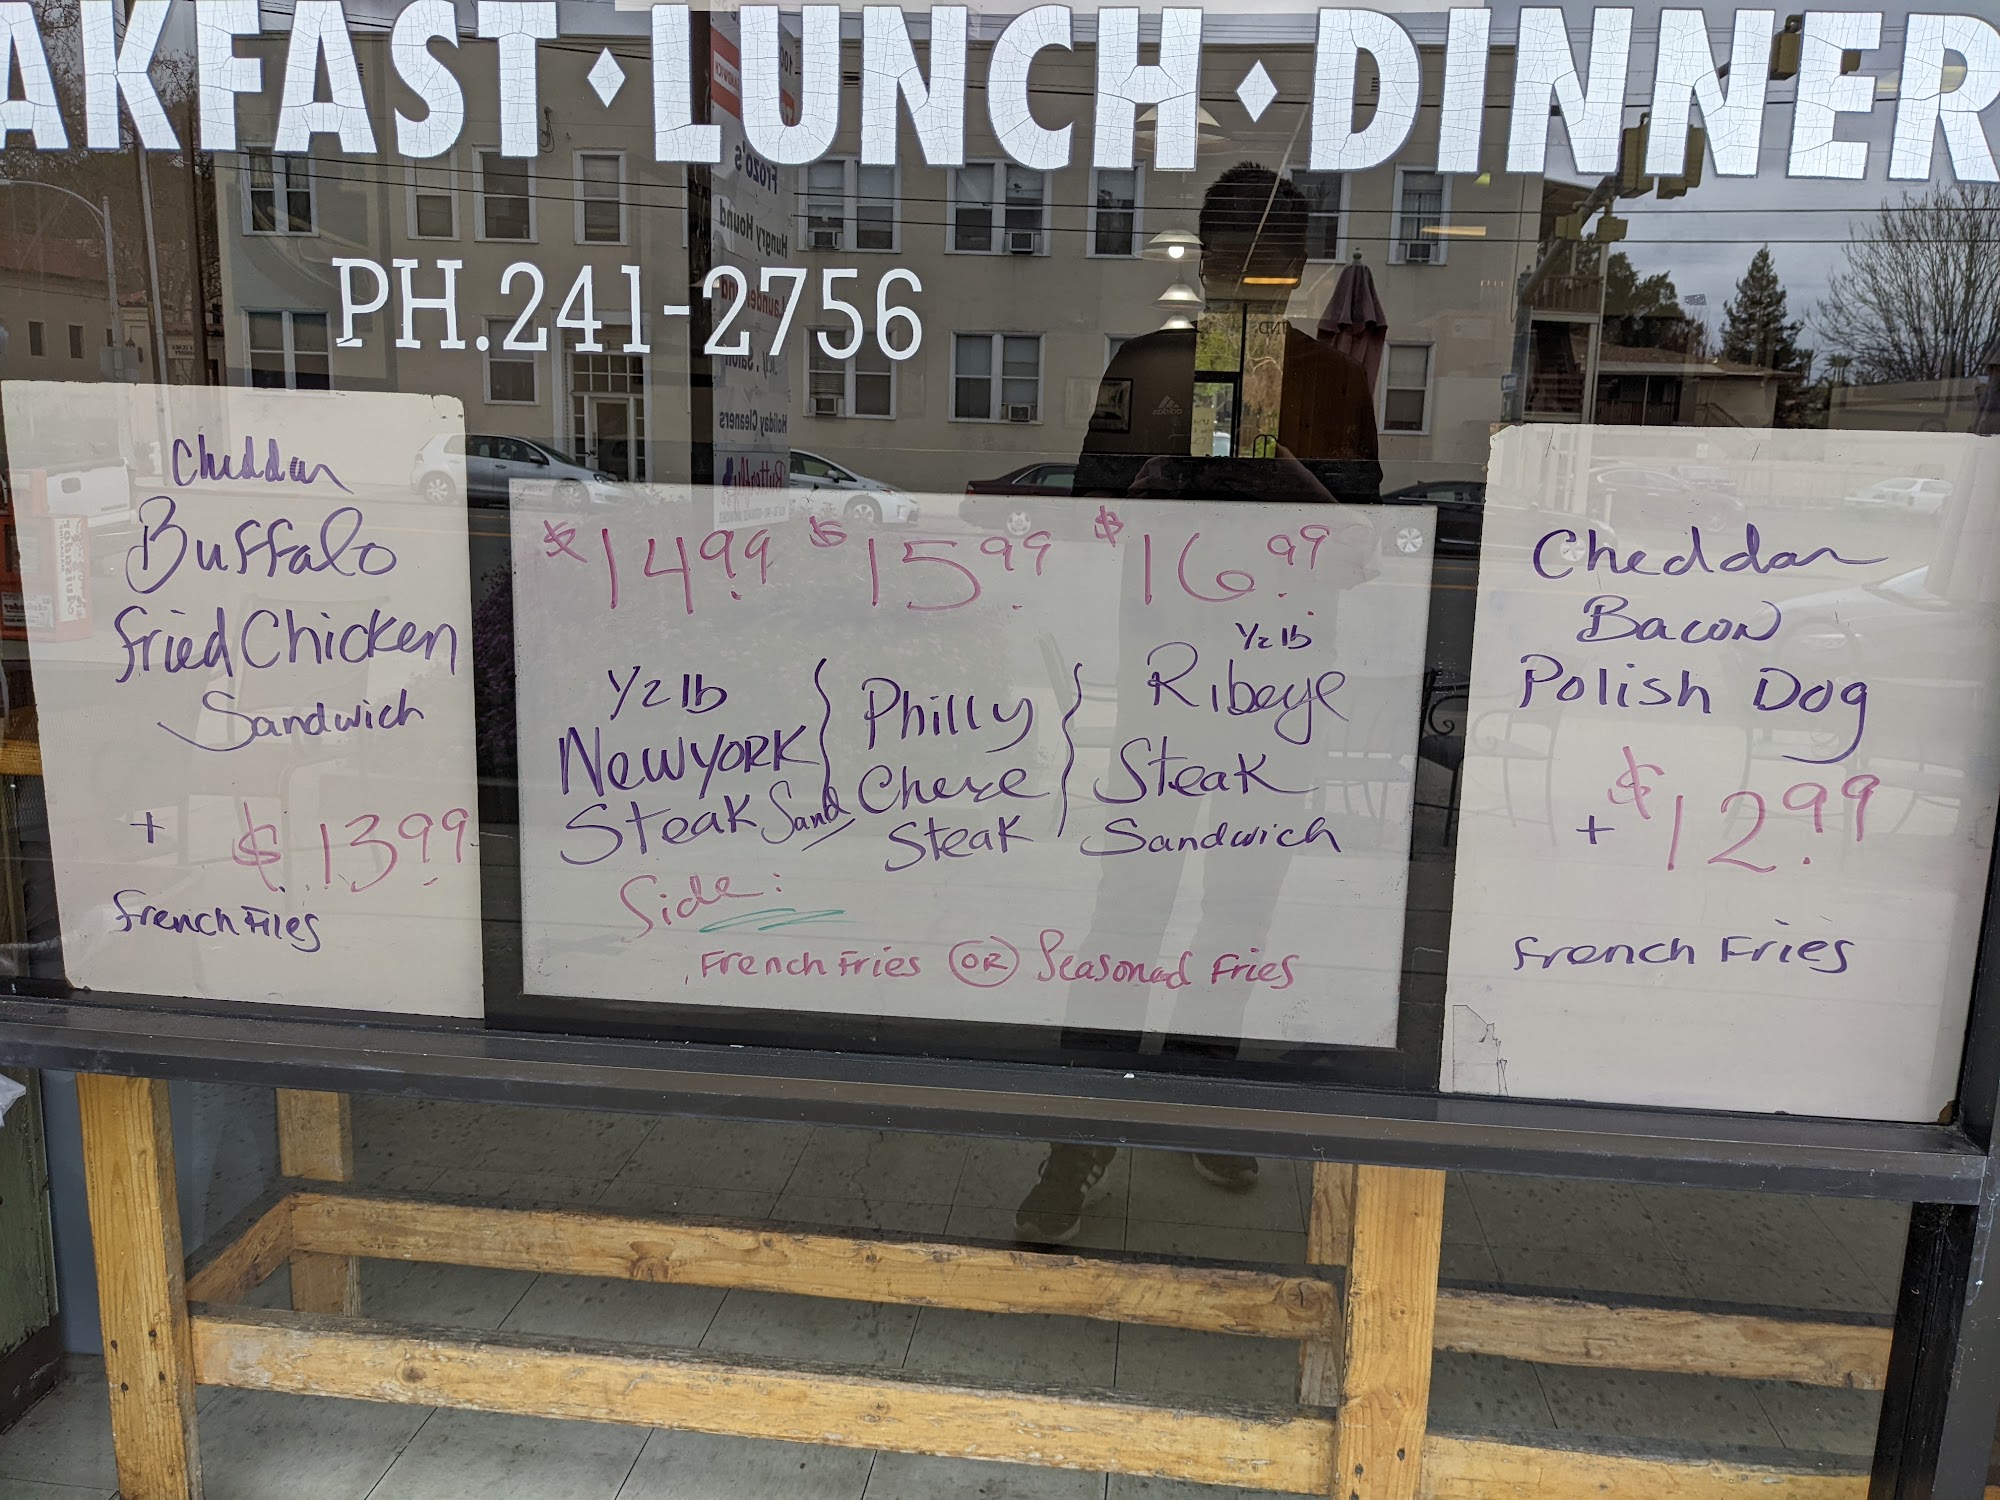 AKFAST · LUNCH · DINNER
PH.241-2756
Cheddar
Buffalo
Fried Chicken
Sandwich
+ $13.99
French Files
$14.99 $15.99 $16.99
1/2 lb
New YORK
Steak Sand
Philly
Chese
Steak
1/2 lb
Ribeye
Steak
Sandwich
Side:
French Fries OR Seasoned Fries
Cheddar
Bacon
Polish Dog
+ $12.99
French Fries
Frozo's
Hungry Hound
Launderland
Holiday Cleaners
Butterfly
adidas